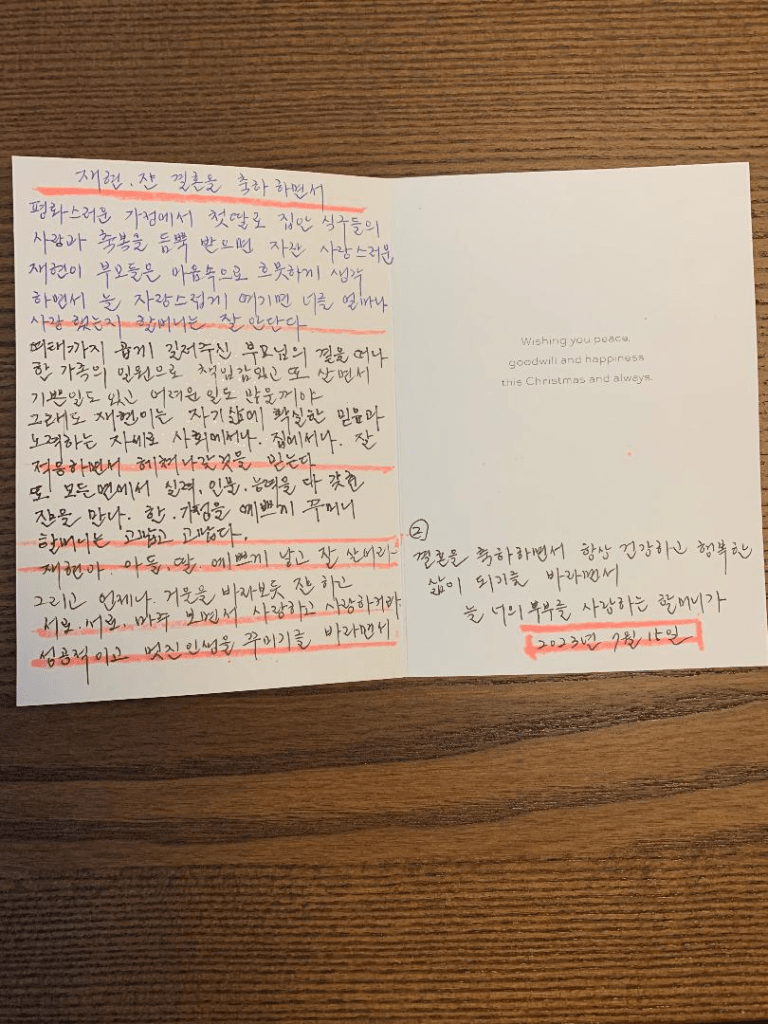 재현, 쟌 결혼을 축하 하면서
평화스러운 가정에서 첫딸로 집안 식구들의
사랑과 축복을 듬뿍 받으면 자란 사랑스러운
재현이 부모들은 마음속으로 흐뭇하게 생각
하면서 늘 자랑스럽게 여기면 너를 얼마나
사랑 했는지 할머니는 잘 안단다
여태까지 곱게 길러주신 부모님의 곁을 떠나
한 가족의 일원으로 책임감있고 또 살면서
기쁜일도 있고 어려운 일도 많을꺼야
그래도 재현이는 자기삶에 확실한 믿음과
노력하는 자세로 사회에서나. 집에서나. 잘
적응하면서 헤쳐나갈것을 믿는다
또. 모든면에서 실력, 인물, 능력을 다 갖춘
쟌을 만나. 한.가정을 예쁘게 꾸미니
할머니는 고맙고 고맙다.
재현아. 아들, 딸. 예쁘게 낳고 잘 살아라
그리고 언제나. 거울을 바라보듯 하고
서로.서로, 마주 보면서 사랑하고 사랑하거라
성공적이고 멋진인생을 꾸미기를 바라면서
Wishing you peace,
goodwill and happiness
this Christmas and always.
②
결혼을 축하하면서 항상 건강하고 행복한
삶이 되기를 바라면서
늘 너의 부부를 사랑하는 할머니가
2023년 7월 15일